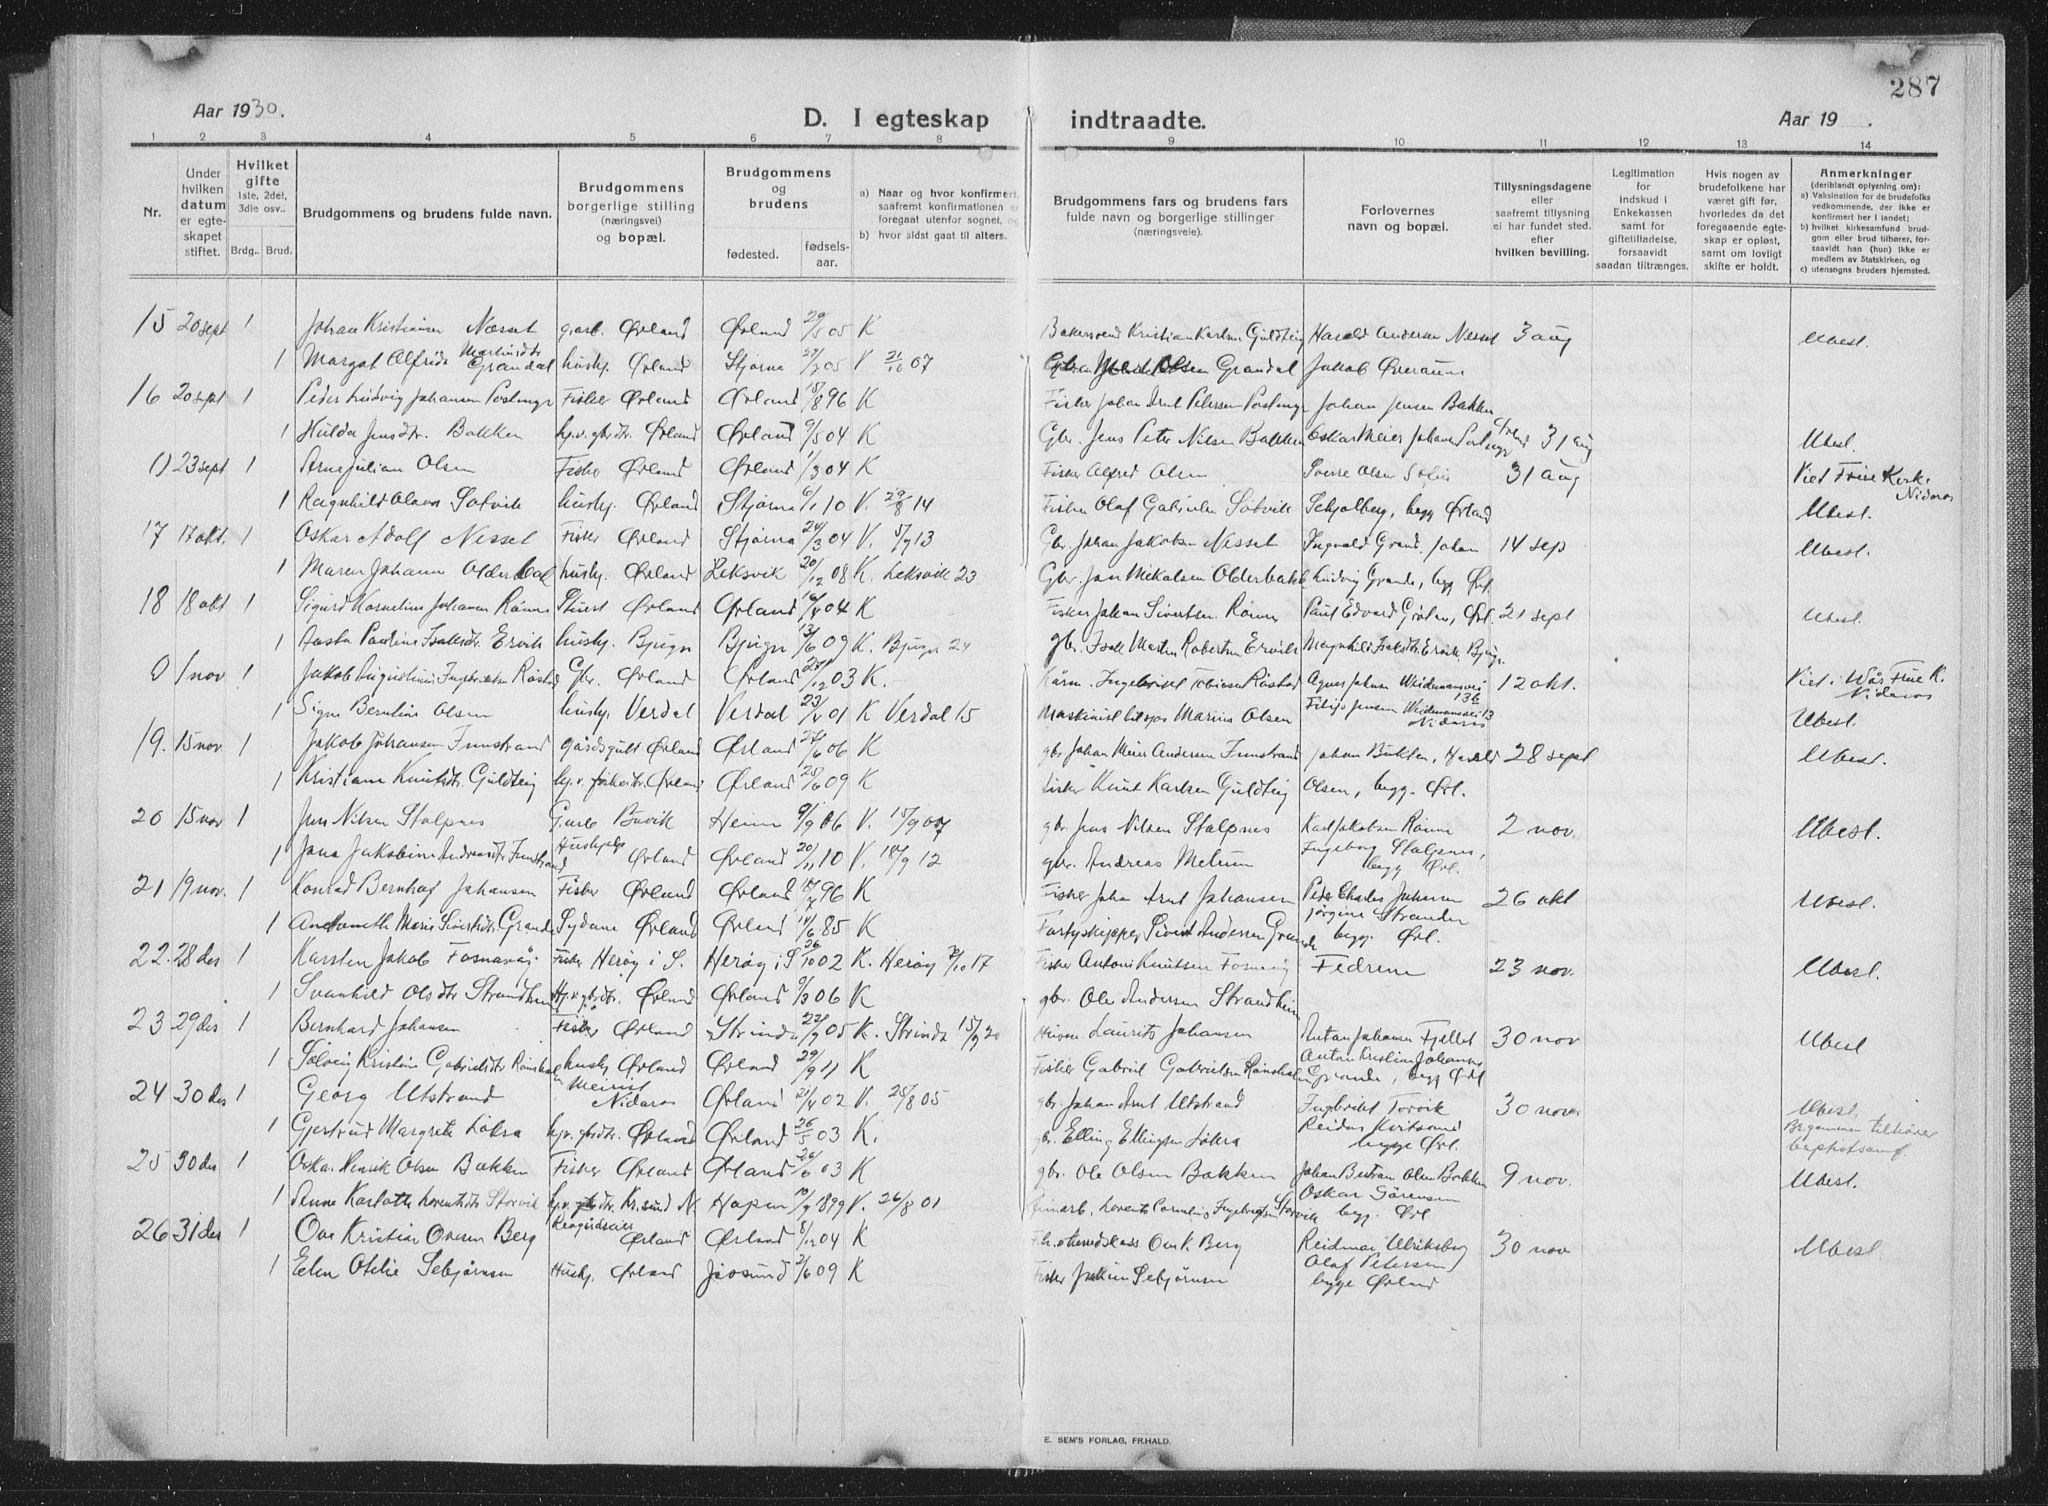 287
Aar 1930.
D. I egteskap indtraadte.
Aar 19 .
1 2 3 4 5 6 7 8 9 10 11 12 13 14
Nr.
Under hvilken datum er egteskapet stiftet.
Hvilket gifte 1ste, 2det, 3die osv..
Brdg.. Brud.
Brudgommens og brudens fulde navn.
Brudgommens borgerlige stilling (næringsvei) og bopæl.
Brudgommens og brudens
fødested. fødselsaar.
a) Naar og hvor konfirmert, saafremt konfirmationen er foregaat utenfor sognet, og
b) hvor sidst gaat til alters.
Brudgommens fars og brudens fars fulde navn og borgerlige stillinger (næringsveie).
Forlovernes navn og bopæl.
Tillysningsdagene eller saafremt tillysning ei har fundet sted, efter hvilken bevilling.
Legitimation for indskud i Enkekassen samt for giftetilladelse, forsaavidt saadan tiltrænges.
Hvis nogen av brudefolkene har været gift før, hvorledes da det foregaaende egteskap er opløst, samt om lovligt skifte er holdt.
Anmerkninger (deriblandt oplysning om):
a) Vaksination for de brudefolks vedkommende, der ikke er konfirmert her i landet;
b) hvilket kirkesamfund brudgom eller brud tilhører, forsaavidt han (hun) ikke er medlem av Statskirken, og
c) utensogns bruders hjemsted.
15 20 sept 1 Johan Kristiansen Nesset g.arb. Ørland Ørland 29/5 05 K Kristian Karlsen Guldteig Harald Andersen Nesset 3 aug Ubest.
1 Margot Alfrida Martinsdtr Grandal hushj. Ørland Stjørna 27/2 05 V 21/10 07 Olsen Grandal Jakob Øveraune
16 20 sept 1 Peder Ludvig Johansen Fisker Ørland Ørland 18/8 96 K Fisker Johan Arnt Petersen Johan Jensen Bakken
1 Hulda Jensdtr. Bakken hj.v. gbrdtr. Ørland Ørland 9/5 04 K Gbr. Jens Peter Nilsen Bakken Oskar Meier Johansen 31 aug Ubest.
0 23 sept 1 Arne Julian Olsen Fisker Ørland Ørland 1/3 04 K Fisker Alfred Olsen Sverre Olsen 31 aug Viet Frue Kirk. Nidaros
1 Ragnhild Olava Sølvik hushj. Ørland Stjørna 6/1 10 V. 29/8 14 Fisker Olaf Gabrielsen Sølvik begg Ørland Ubest.
17 17 okt. 1 Oskar Adolf Nesset Fisker Ørland Stjørna 24/3 04 V. 5/9 13 Gbr. Johan Jakobsen Nesset Ingvald Grand, Johan 14 sep Ubest.
1 Maren Johanna Olderbak hushj. Ørland Leksvik 20/12 08 K. Leksvik 23 Gbr. Jens Mikalsen Olderbakk Ludvig Grande, begg Ørl.
18 18 okt 1 Sigurd Kornelius Johansen Rønne Stuert Ørland Ørland 16/4 04 K Fisker Johan Sivertsen Rønne Paul Edvard Grøten, Ørl. 21 sept Ubest.
1 Aasta Pauline Isaksdtr Ervik hushj. Bjugn Bjugn 13/6 09 K. Bjugn 24 gbr. Isak Martin Robertsen Ervik Magnhild Isaksdtr Ervik, Bjugn
0 1 nov 1 Jakob Augustinus Ingebriktsen Røstad Gbr. Ørland Ørland 27/12 03 K. Kårm. Ingebrigt Tobiasen Røstad Agnes Johnsen Weidemansvei 13b 12 okt. Viet i Vår Frue K. Nidaros
1 Signe Berntine Olsen hushj. Verdal Verdal 23/4 01 K Verdal 15 Maskinist Marius Olsen Filip Jensen Weidemansvei 13 Nidaros Ubest.
19. 15 nov. 1 Jakob Johansen Innstrand gårdsgutt Ørland Ørland 27/6 06 K gbr Johan Meier Andersen Innstrand Johan Bukten, Harald 28 sept Ubest.
1 Kristiane Knutsdtr. Guldteig hj.v. fiskerdtr. Ørland Ørland 25/6 09 K Fisker Knut Karlsen Guldteig Olsen, begg. Ørl.
20 15 nov 1 Jens Nilsen Stalpnes G.arb Buvik Heim 9/9 06 V. 15/9 07 gbr. Jens Nilsen Stalpnes Karl Jakobsen Rønne 2 nov. Ubest.
1 Jana Jakobine Andreasdtr Innstrand Hushjelp Ørland Ørland 20/11 10 V. 18/9 12 gbr. Andreas Melum Ingeborg Stalpnes, begg Ørl.
21 19 nov. 1 Konrad Bernhof Johansen Fisker Ørland Ørland 18/7 96 K Fisker Johan Arnt Johansen Peder Charles Johansen 26 okt Ubest.
1 Antonette Marie Sivertsdtr. Grande Sydame Ørland Ørland 14/6 85 K Sivert Andersen Grande Jørgine Strander begg. Ørl.
22. 28 des 1 Karsten Jakob Fosnavåg Fisker Herøy i S. Herøy i S 26/10 02 K. Herøy 7/10 17 Fisker Antoni Knutsen Fosnavåg Fedrene 23 nov. Ubest.
1 Svanhild Olsdtr Strandheim Hj.v. gbrdtr. Ørland Ørland 9/3 06 K gbr. Ole Andersen Strandheim
23 29 des 1 Bernhard Johansen Fisker Ørland Strinda 22/9 05 K. Strinda 15/9 20 Laurits Johansen Anton Johansen Fjellet 30 nov Ubest
1 Solveig Kristine Gabrielsdtr Rønsholm hushj Ørland Ørland 29/9 11 K Fisker Gabriel Gabrielsen Rønsholm Anton Kristian Johannes Grande, begg Ørl
24 30 des 1 Georg Utstrand Meierist Nidaros Ørland 21/4 02 V. 25/8 05 gbr. Johan Arnt Utstrand Ingbrikt Torvik 30 nov. Ubest.
1 Gjertrud Margrete Løksa hj.v. gbrdtr. Ørland Ørland 26/5 03 K. gbr. Elling Ellingsen Løksa Reidar Kvitsand begge Ørl. Brgommen tilhører baptistsamf.
25 30 des 1 Oskar Henrik Olsen Bakken Fisker Ørland Ørland 26/6 03 K gbr. Ole Olsen Bakken Johan Betran Olsen Bakken 9 nov. Ubest.
1 Anna Karlotte Lorentsdtr Storvik Kr.sund N. Hopen 10/9 1899 V. 26/8 01 Lorents Cornelius Ingebrigtsen Storvik Oskar Sørensen begg. Ørl
26 31 des 1 Ove Kristian Ovesen Berg Ørland Ørland 8/12 04 K Ove K. Berg Reidmar Ulriksborg 30 nov Ubest.
1 Elen Otelie Sebjørnsen Hushj. Ørland Jøssund 2/6 09 K Fisker Joakim Sebjørnsen Olaf Petersen begge Ørland
E. SEM'S FORLAG, FR.HALD.